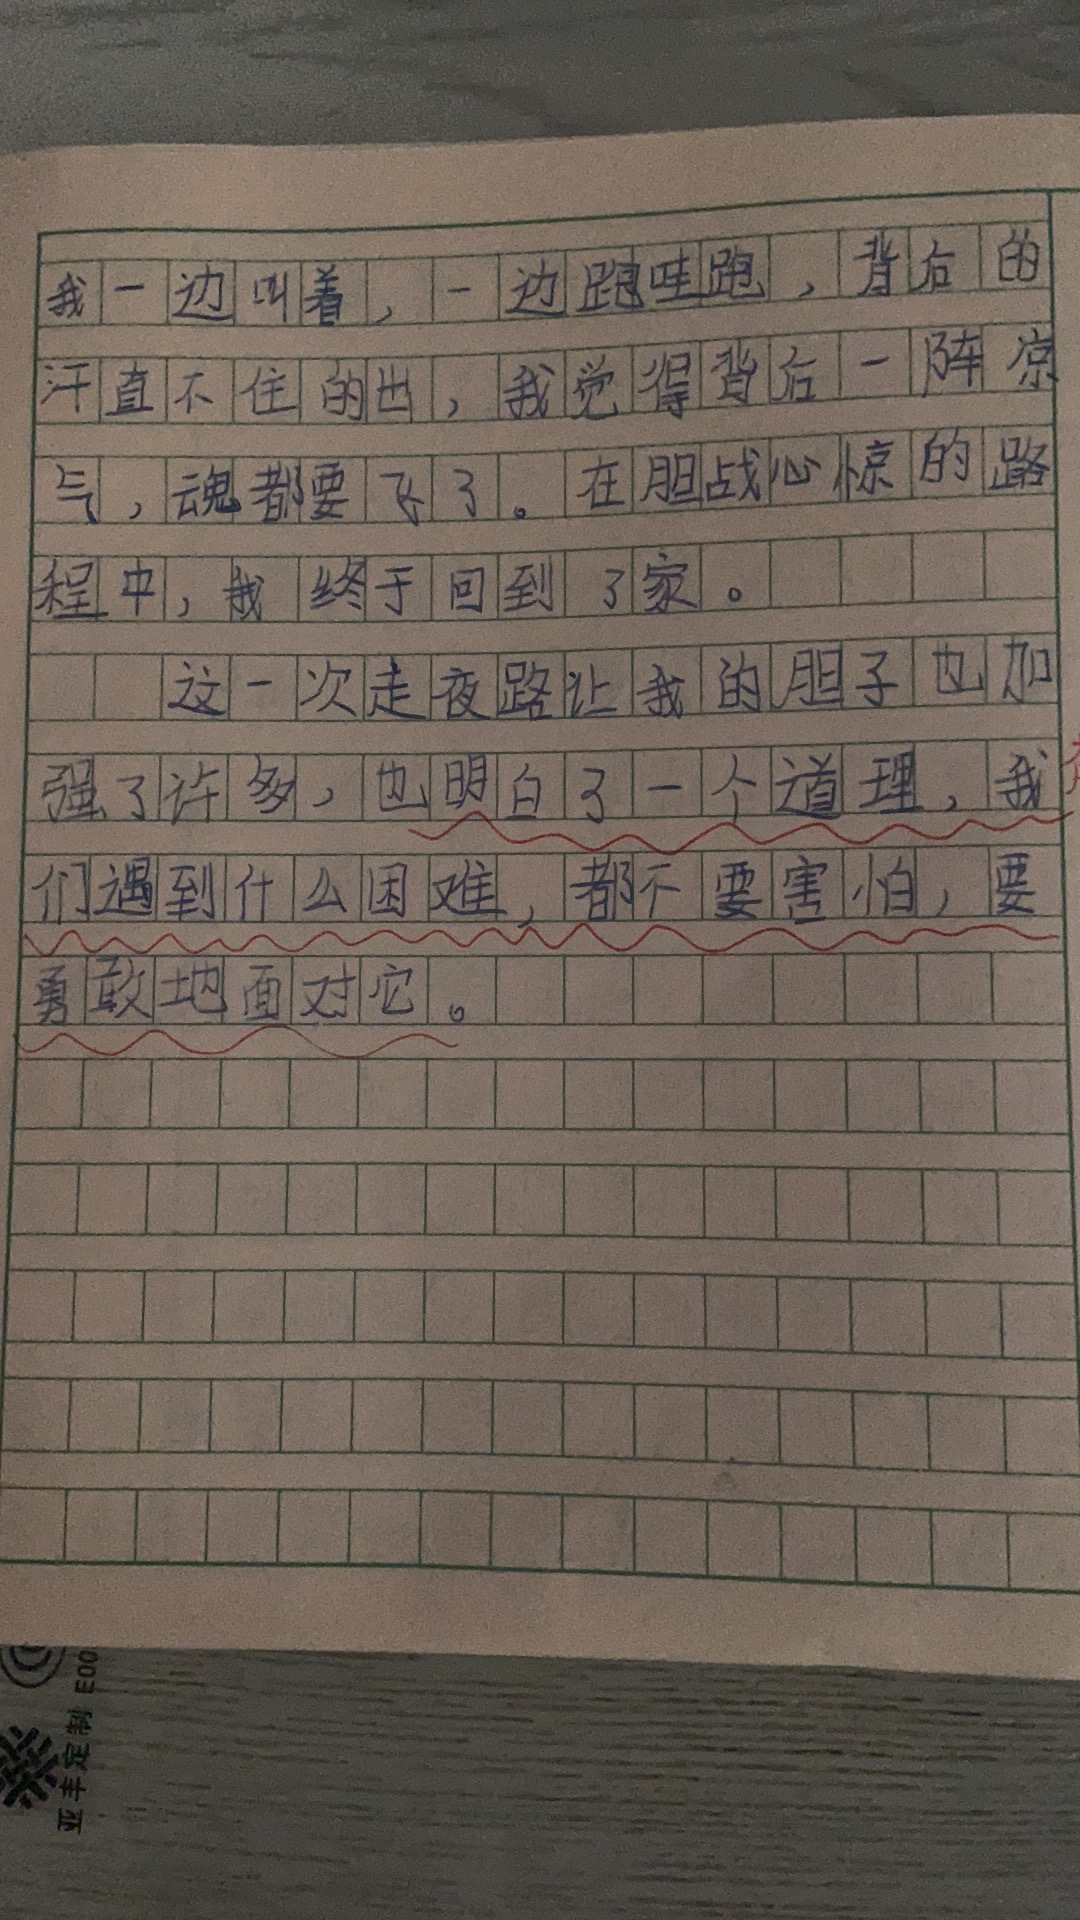 我一边叫着，一边跑哇跑，背后的
汗直不住的出，我觉得背后一阵凉
气，魂都要飞了。在胆战心惊的路
程中，我终于回到了家。
这一次走夜路让我的胆子也加
强了许多，也明白了一个道理，我
们遇到什么困难，都不要害怕，要
勇敢地面对它。
亚丰定制 E00